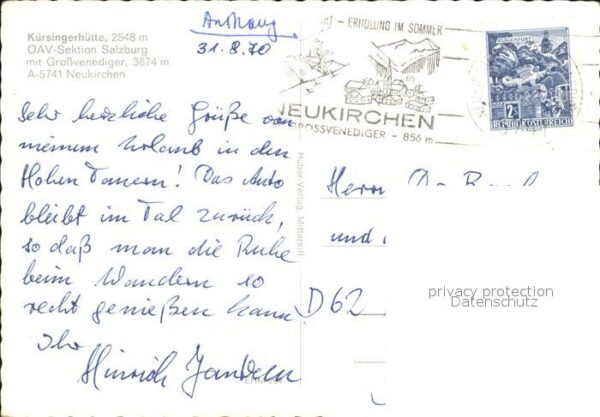 Kürsingerhütte, 2548 m
OAV-Sektion Salzburg
mit Großvenediger, 3674 m
A-5741 Neukirchen
31.8.70
Sehr herzliche Grüße von
meinem Urlaub in den
Hohen Tauern! Das Auto
bleibt im Tal zurück,
so daß man die Ruhe
beim Wandern so
recht genießen kann.
Ihr
Hinrich
- ERHOLUNG IM SOMMER
NEUKIRCHEN
GROSSVENEDIGER - 856 m
KLAGENFURT
2S
REPUBLIK ÖSTERREICH
Huber-Verlag, Mittersill
Herrn
und
D 62
privacy protection
Datenschutz